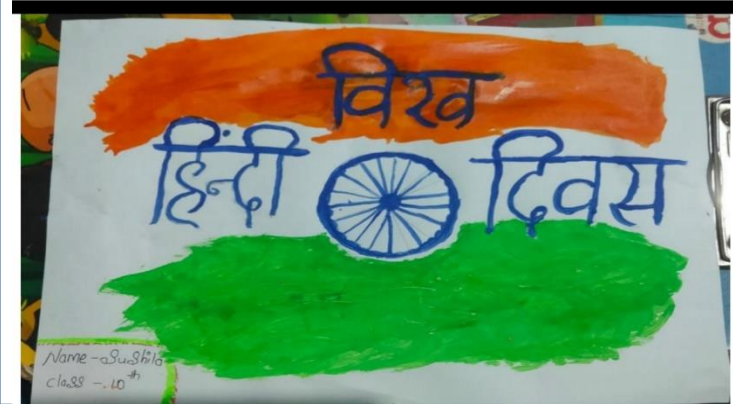 विश्व
हिंन्दी दिवस
Name - Sushila
class - 10th